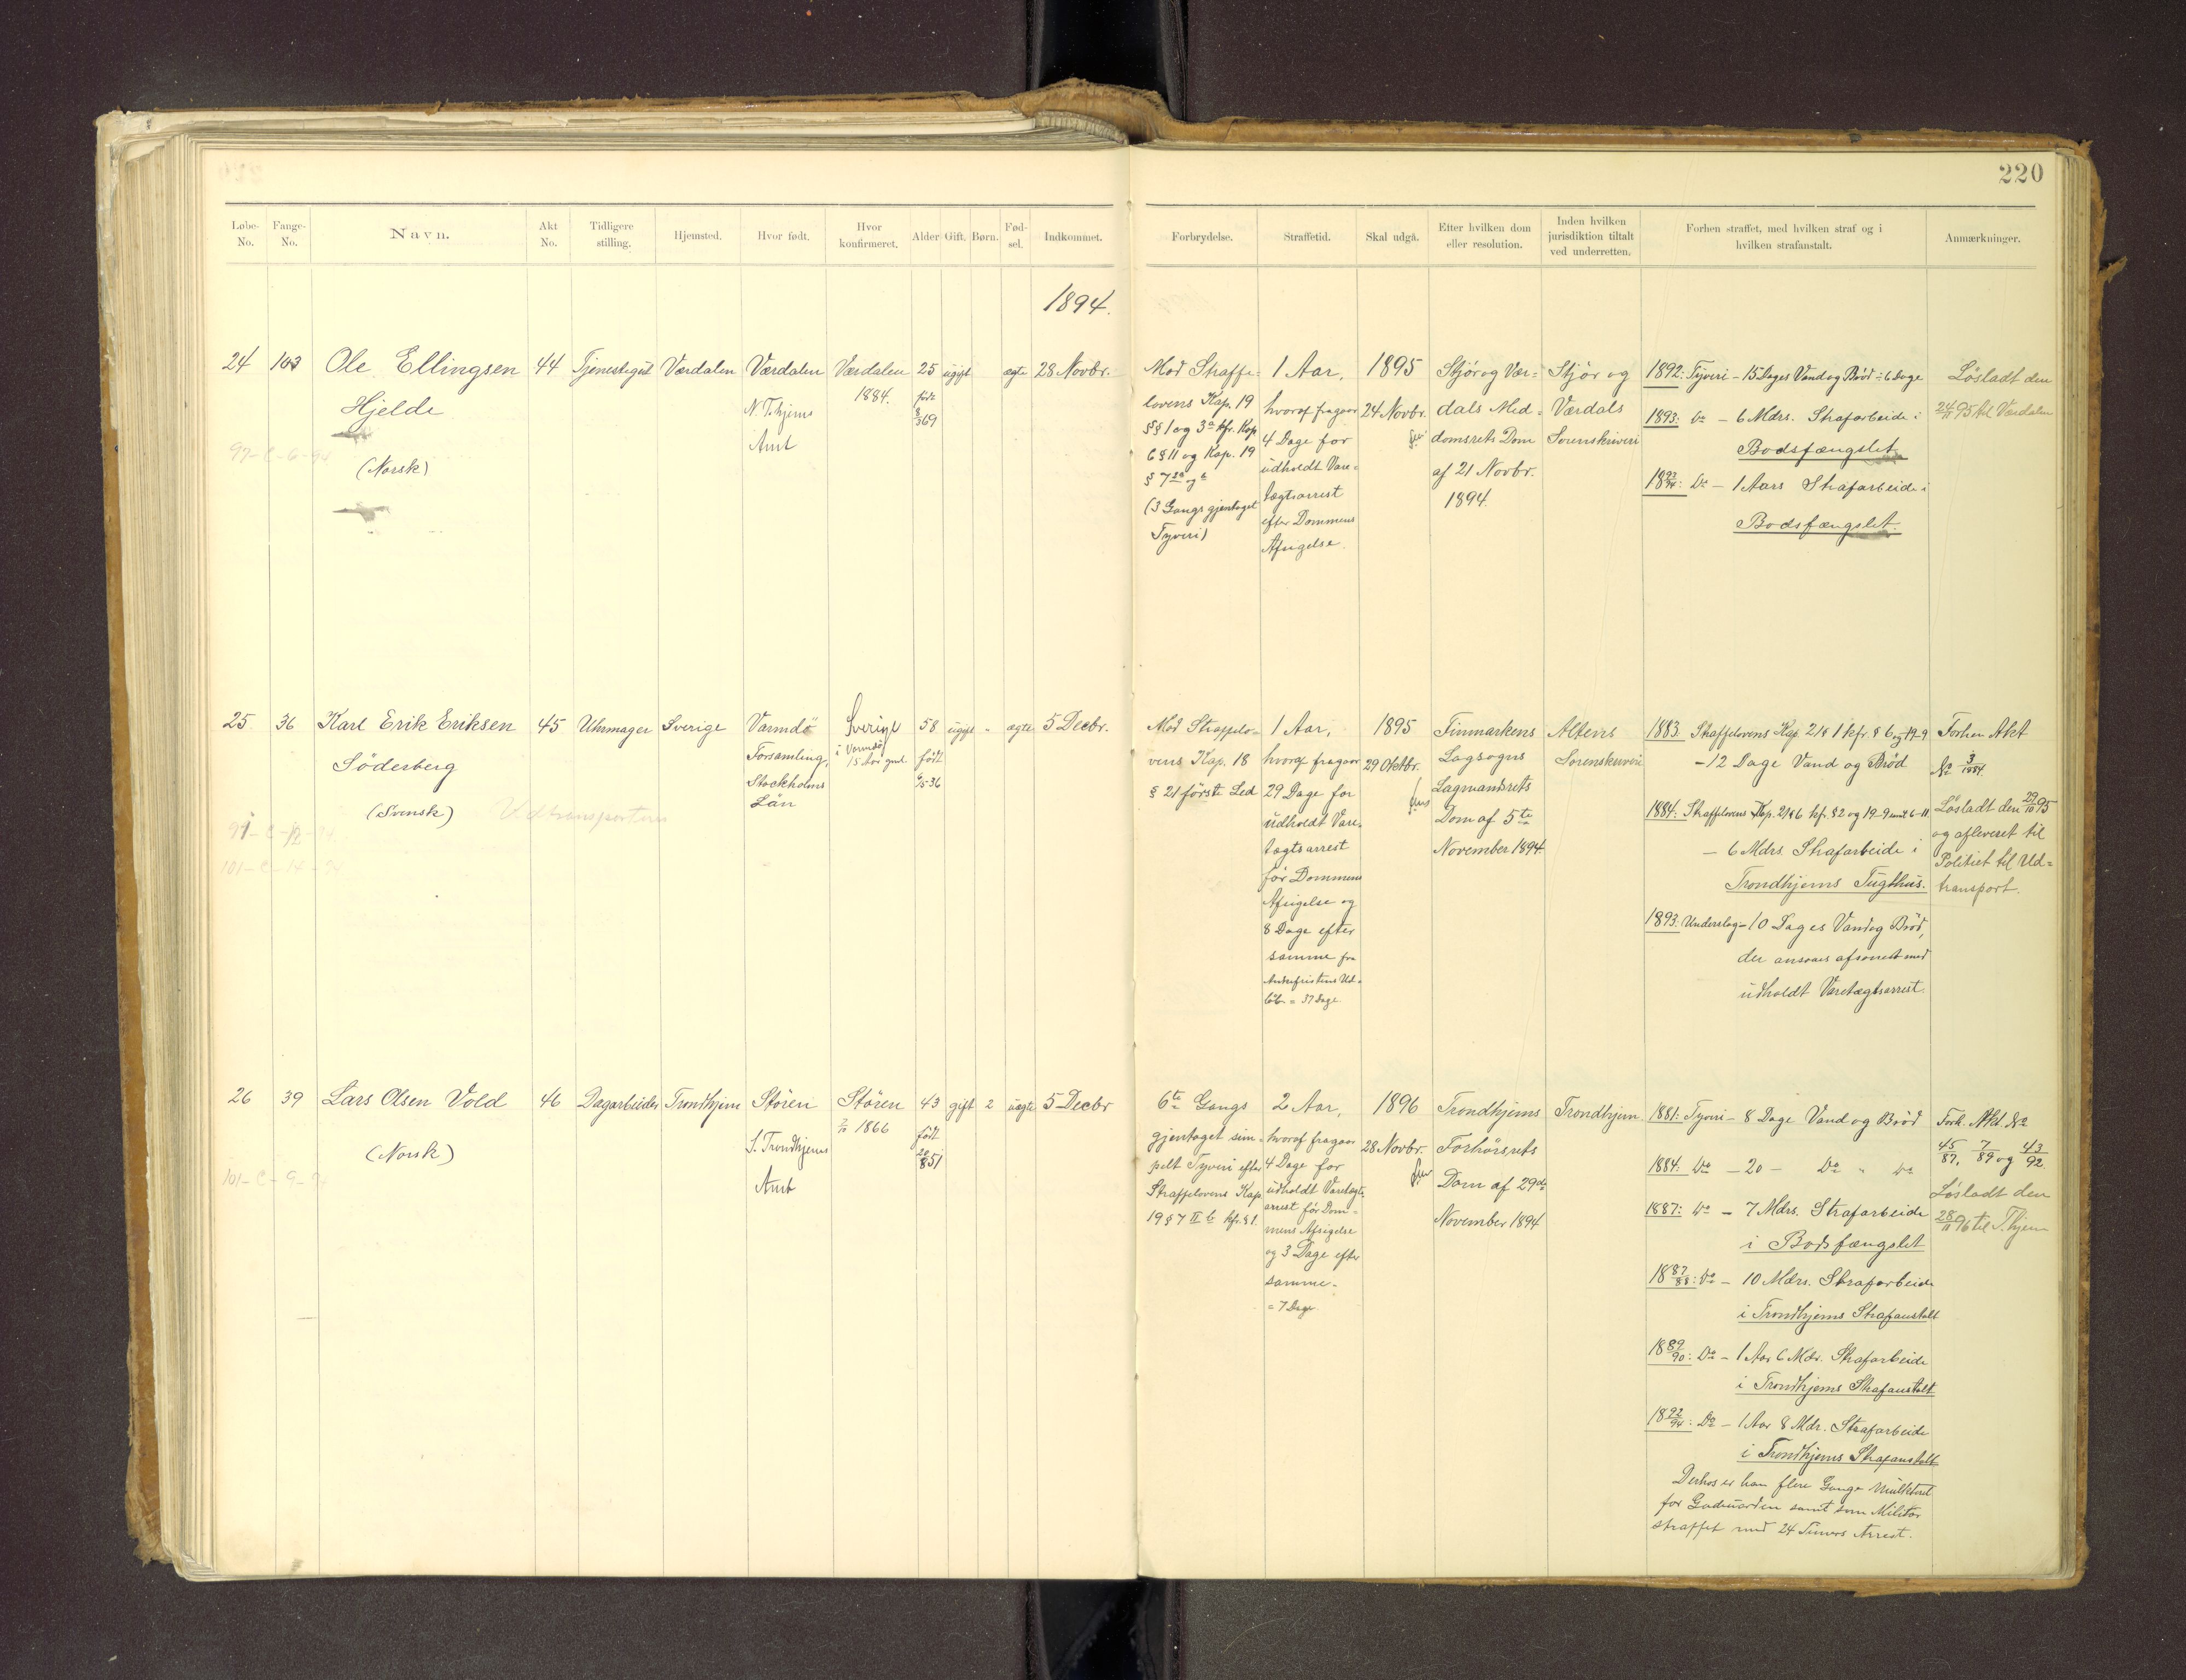 220
Løbe-No.
Fange-No.
Navn.
Akt No.
Tidligere stilling.
Hjemsted.
Hvor født.
Hvor konfirmeret.
Alder
Gift.
Børn.
Fød-sel.
Indkommet.
Forbrydelse.
Straffetid.
Skal udgå.
Efter hvilken dom eller resolution.
Inden hvilken jurisdiktion tiltalt ved underretten.
Forhen straffet, med hvilken straf og i hvilken strafanstalt.
Anmærkninger.
1894.
24
103
Ole Ellingsen
Hjelde
(Norsk)
97-C-6-94
44
Tjenestegut
Værdalen
Værdalen
N. T.hjems
Amt
Værdalen
1884.
25
født
69
ugift
ægte
28 Novbr.
Mod Straffe-
lovens Kap. 19
§§ 1 og 3 a kfr. Kap
6 § 11 og Kap. 19
§ 7
(3 Gangs gjentaget
Tyveri)
1 Aar,
hvoraf fragaar
4 Dage for
udholdt Vare-
tægtsarrest
efter Dommens
Afsigelse.
1895
24 Novbr.
Stjør og Vær-
dals Med-
domsrets Dom
af 21 Novbr.
1894.
Stjør og
Værdals
Sorenskriveri
1892: Tyveri - 15 Dages Vand og Brød ÷ 6 Dage
1893: Do - 6 Mdrs. Strafarbeide i
Bodsfængslet
1893/94: Do - 1 Aars Strafarbeide i
Bodsfængslet.
Løsladt den
24/11 95 til Værdalen
25
36
Karl Erik Eriksen
Söderberg
(Svensk)
Udtransporteres
101-C-14-94
45
Uhrmager
Sverige
Varmdö
Forsamling,
Stockholms
Län
Sverige
i Varmdö
15 Aar gml.
58
født
6/5 36
ugift
"
ægte
5 Decbr.
Mod Straffelo-
vens Kap. 18
§ 21 første Led
1 Aar,
hvoraf fragaar
29 Dage for
udholdt Vare-
tægtsarrest
før Dommens
Afsigelse og
8 Dage efter
samme fra
Ankefristens Ud-
løb = 37 Dage
1895
29 Oktbr.
Finmarkens
Lagsogns
Lagmandsrets
Dom af 5te
November 1894.
Altens
Sorenskriveri
1883. Straffelovens Kap. 21 § 1 kfr. § 6 og 19-9
- 12 Dage Vand og Brød
1884: Straffelovens Kap. 21 § 6 kfr. § 2 og 19-9 samt 6-11
- 6 Mdrs. Strafarbeide i
Trondhjems Tugthus.
1893: Underslag - 10 Dages Vand og Brød,
der ansaaes afsonet med
udholdt Varetægtsarrest.
Forhen Akt
No 3/1884.
Løsladt den 29/10 95
og afleveret til
Politiet til Ud-
transport.
26
39
Lars Olsen Vold
(Norsk)
101-C-9-94
46
Dagarbeider
Trondhjem
Støren
S. Trondhjems
Amt
Støren
1866
43
født
851
gift
2
uægte
5 Decbr
6te Gangs
gjentaget sim-
pelt Tyveri efter
Straffelovens Kap.
19 § 7 II b kfr. § 1.
2 Aar,
hvoraf fragaar
4 Dage for
udholdt Varetægts-
arrest før Dom-
mens Afsigelse
og 3 Dage efter
samme -
= 7 Dage
1896
28 Novbr.
Trondhjems
Forhørsrets
Dom af 29de
November 1894
Trondhjem.
1881: Tyveri - 8 Dage Vand og Brød
1884: Do - 20 - Do " Do
1887: Do - 7 Mdrs. Strafarbeide
i Bodsfængslet
1887/88: Do - 10 Mdrs. Strafarbeide
i Trondhjems Strafanstalt
1889/90: Do - 1 Aar 6 Mdr. Strafarbeide
i Trondhjems Strafanstalt
1892/94: Do - 1 Aar 8 Mdr. Strafarbeide
i Trondhjems Strafanstalt
Derhos er han flere Gange mulkteret
for Gadeuorden samt som Militær
straffet med 24 Timers Arrest.
Forh. Akt No
45/87, 7/89 og 43/92.
Løsladt den
28/11 96 til T.hjem